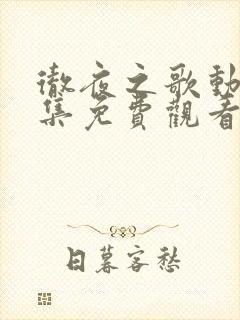 徹夜之歌動
集免費觀看
日暮客愁